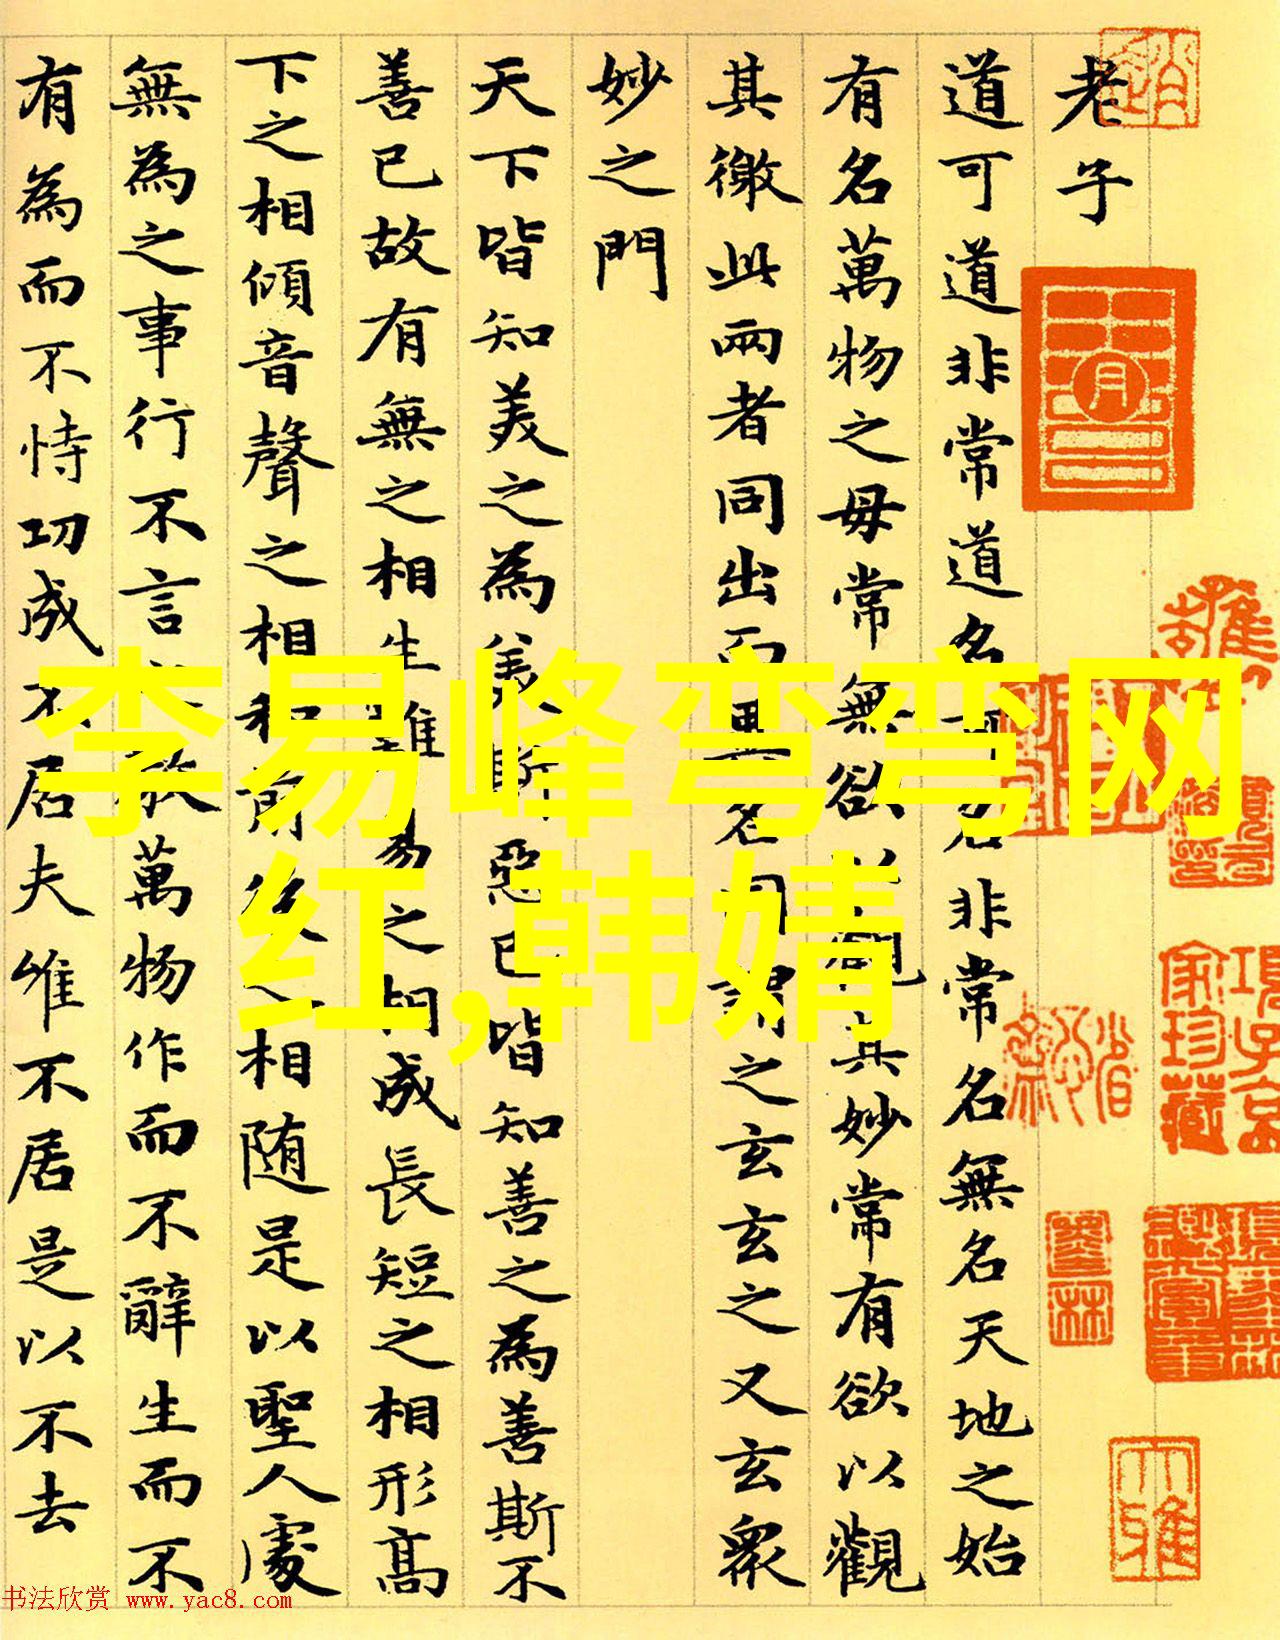 老子
道可道非常道名可名非常名無名天地之始
有名萬物之母常無欲以觀其妙常有欲以觀
其徼此兩者同出而異名同謂之玄玄之又玄衆
妙之門
天下皆知美之為美斯惡已皆知善之為善斯不
善已故有無之相生難易之相成長短之相形高
下之相傾音聲之相和前後之相随是以聖人處
無為之事行不言之教萬物作而不辭生而不
有為而不恃功成不居夫唯不居是以不去
李易峰弯弯网
红,韩婧
书法欣赏 www.yac8.com